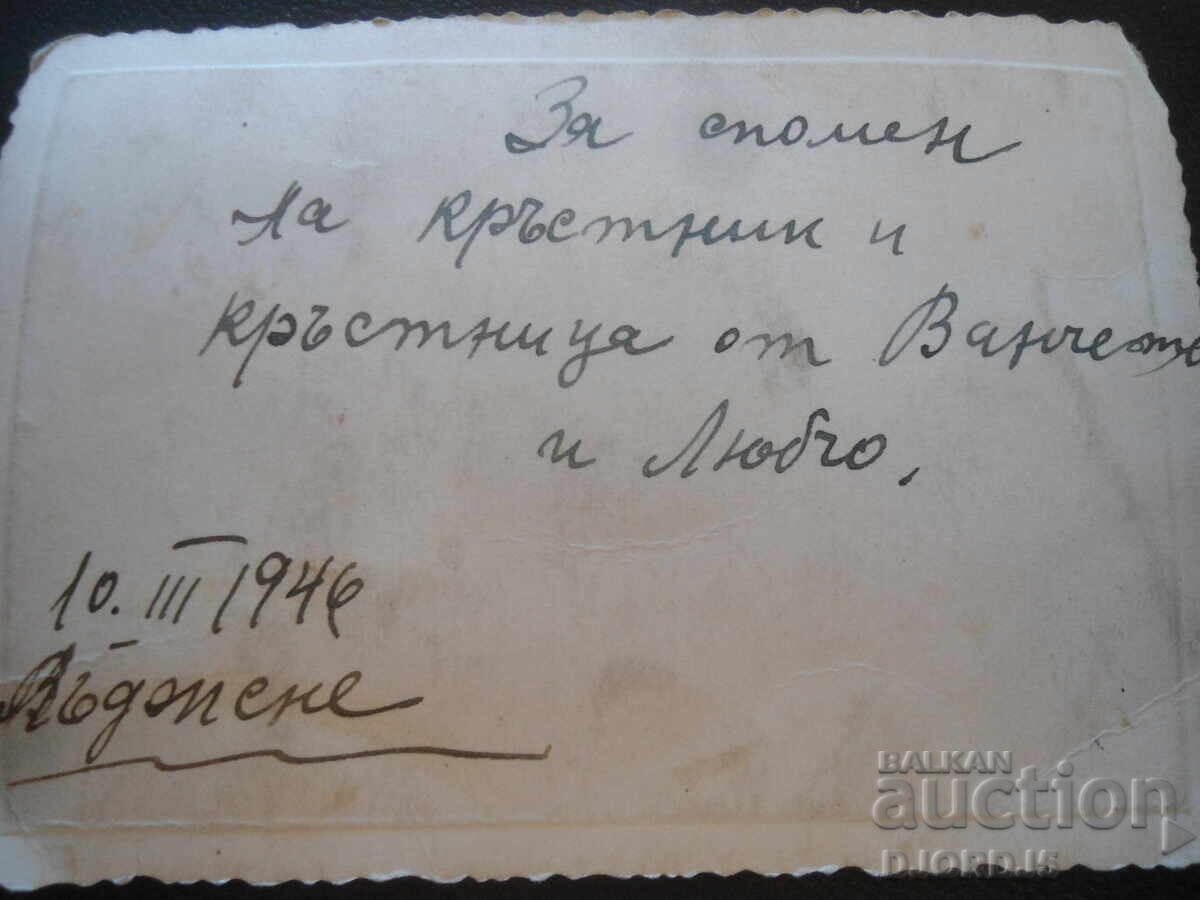 За спомен
На кръстник и
кръстница от Ванчето
и Любчо,
10. III 1946
Лъджене
BALKAN
auction
DJORDJ5